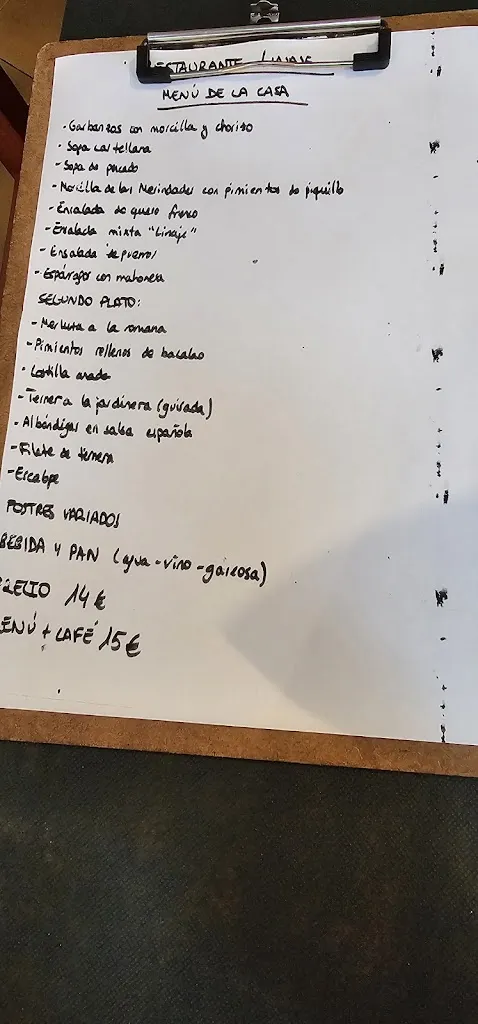 RESTAURANTE LINAJE
MENÚ DE LA CASA
- Garbanzos con morcilla y chorizo
- Sopa castellana
- Sopa de pescado
- Morcilla de las Merindades con pimientos de piquillo
- Ensalada de queso fresco
- Ensalada mixta "Linaje"
- Ensalada de puerros
- Espárragos con mahonesa
SEGUNDO PLATO:
- Merluza a la romana
- Pimientos rellenos de bacalao
- Costilla asada
- Ternera la jardinera (guisada)
- Albóndigas en salsa española
- Filete de ternera
- Escalope
POSTRES VARIADOS
BEBIDA Y PAN (agua - vino - gaseosa)
PRECIO 14 €
MENÚ + CAFÉ 15 €